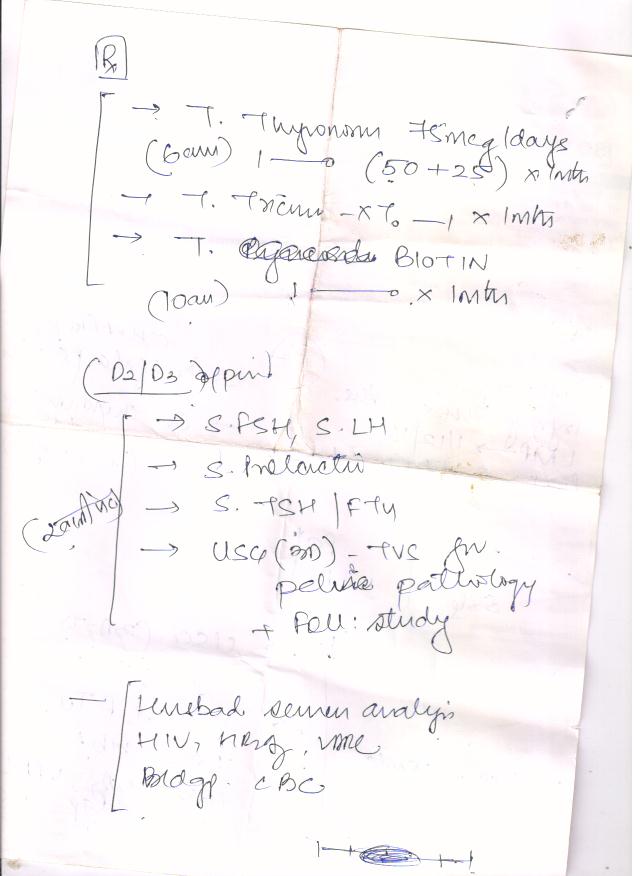 Rx
→ T. Thyronorm 75mcg/days
(6am) 1—o (50+25) x 1mth
→ T. - x 1mth
→ T. BIOTIN
(10am) 1—o x 1mth
(D2/D3) of period
→ S. FSH, S. LH
→ S. Prolactin
→ S. TSH / FT4
→ USG (3D) - TVS for
pelvic pathology
+ Foll: study
— Husband semen analysis
HIV, HBsAg, VDRL
Bldgp. CBC